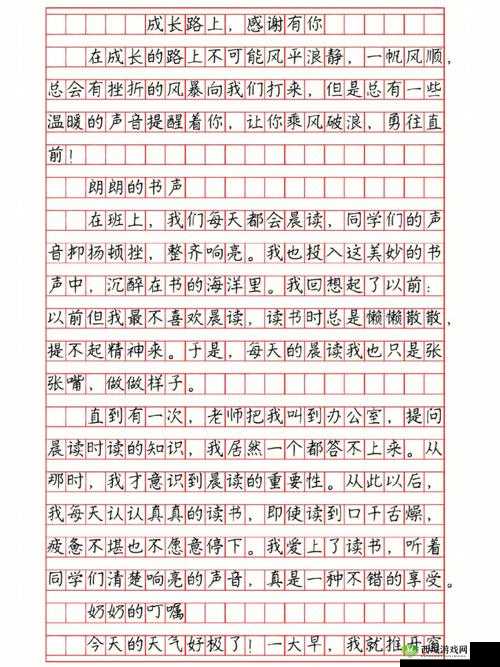 成长路上，感谢有你
在成长的路上不可能风平浪静，一帆风顺，
总会有挫折的风暴向我们打来，但是总有一些
温暖的声音提醒着你，让你乘风破浪，勇往直
前！
朗朗的书声
在班上，我们每天都会晨读，同学们的声
音抑扬顿挫，整齐响亮。我也投入这美妙的书
声中，沉醉在书的海洋里。我回想起了以前：
以前但我最不喜欢晨读，读书时总是懒懒散散，
提不起精神来。于是，每天的晨读我也只是张
张嘴，做做样子。
直到有一次，老师把我叫到办公室，提问
晨读时读的知识，我居然一个都答不上来。从
那时，我才意识到晨读的重要性。从此以后，
我每天认认真真的读书，即使读到口干舌燥，
疲惫不堪也不愿意停下。我爱上了读书，听着
同学们清楚响亮的声音，真是一种不错的享受。
奶奶的叮嘱
今天的天气好极了！一大早，我就推开窗
西城游戏网